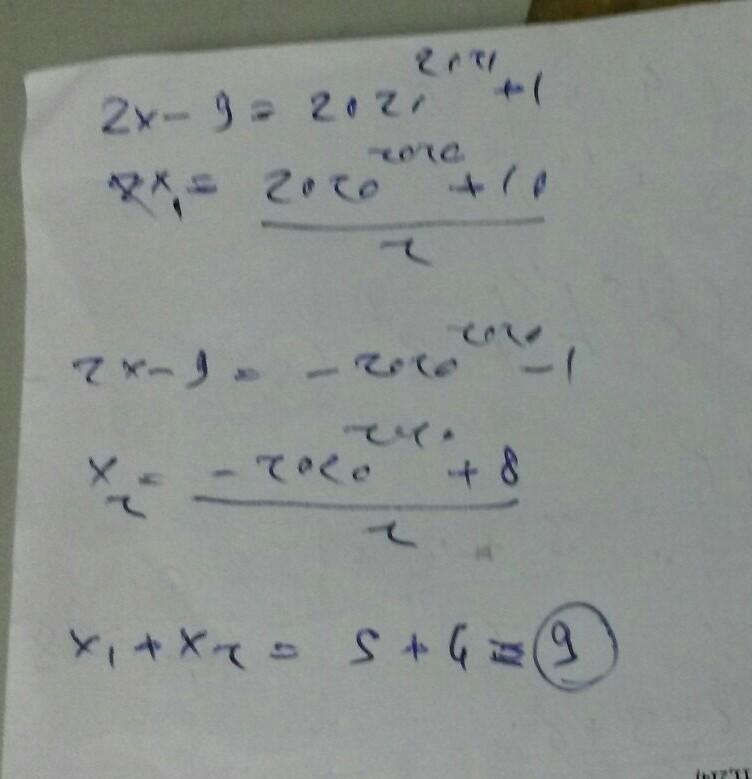 2x - 9 = 2020^2020 + 1
x₁ = (2020^2020 + 10) / 2
2x - 9 = -2020^2020 - 1
x₂ = (-2020^2020 + 8) / 2
x₁ + x₂ = 5 + 4 = 9